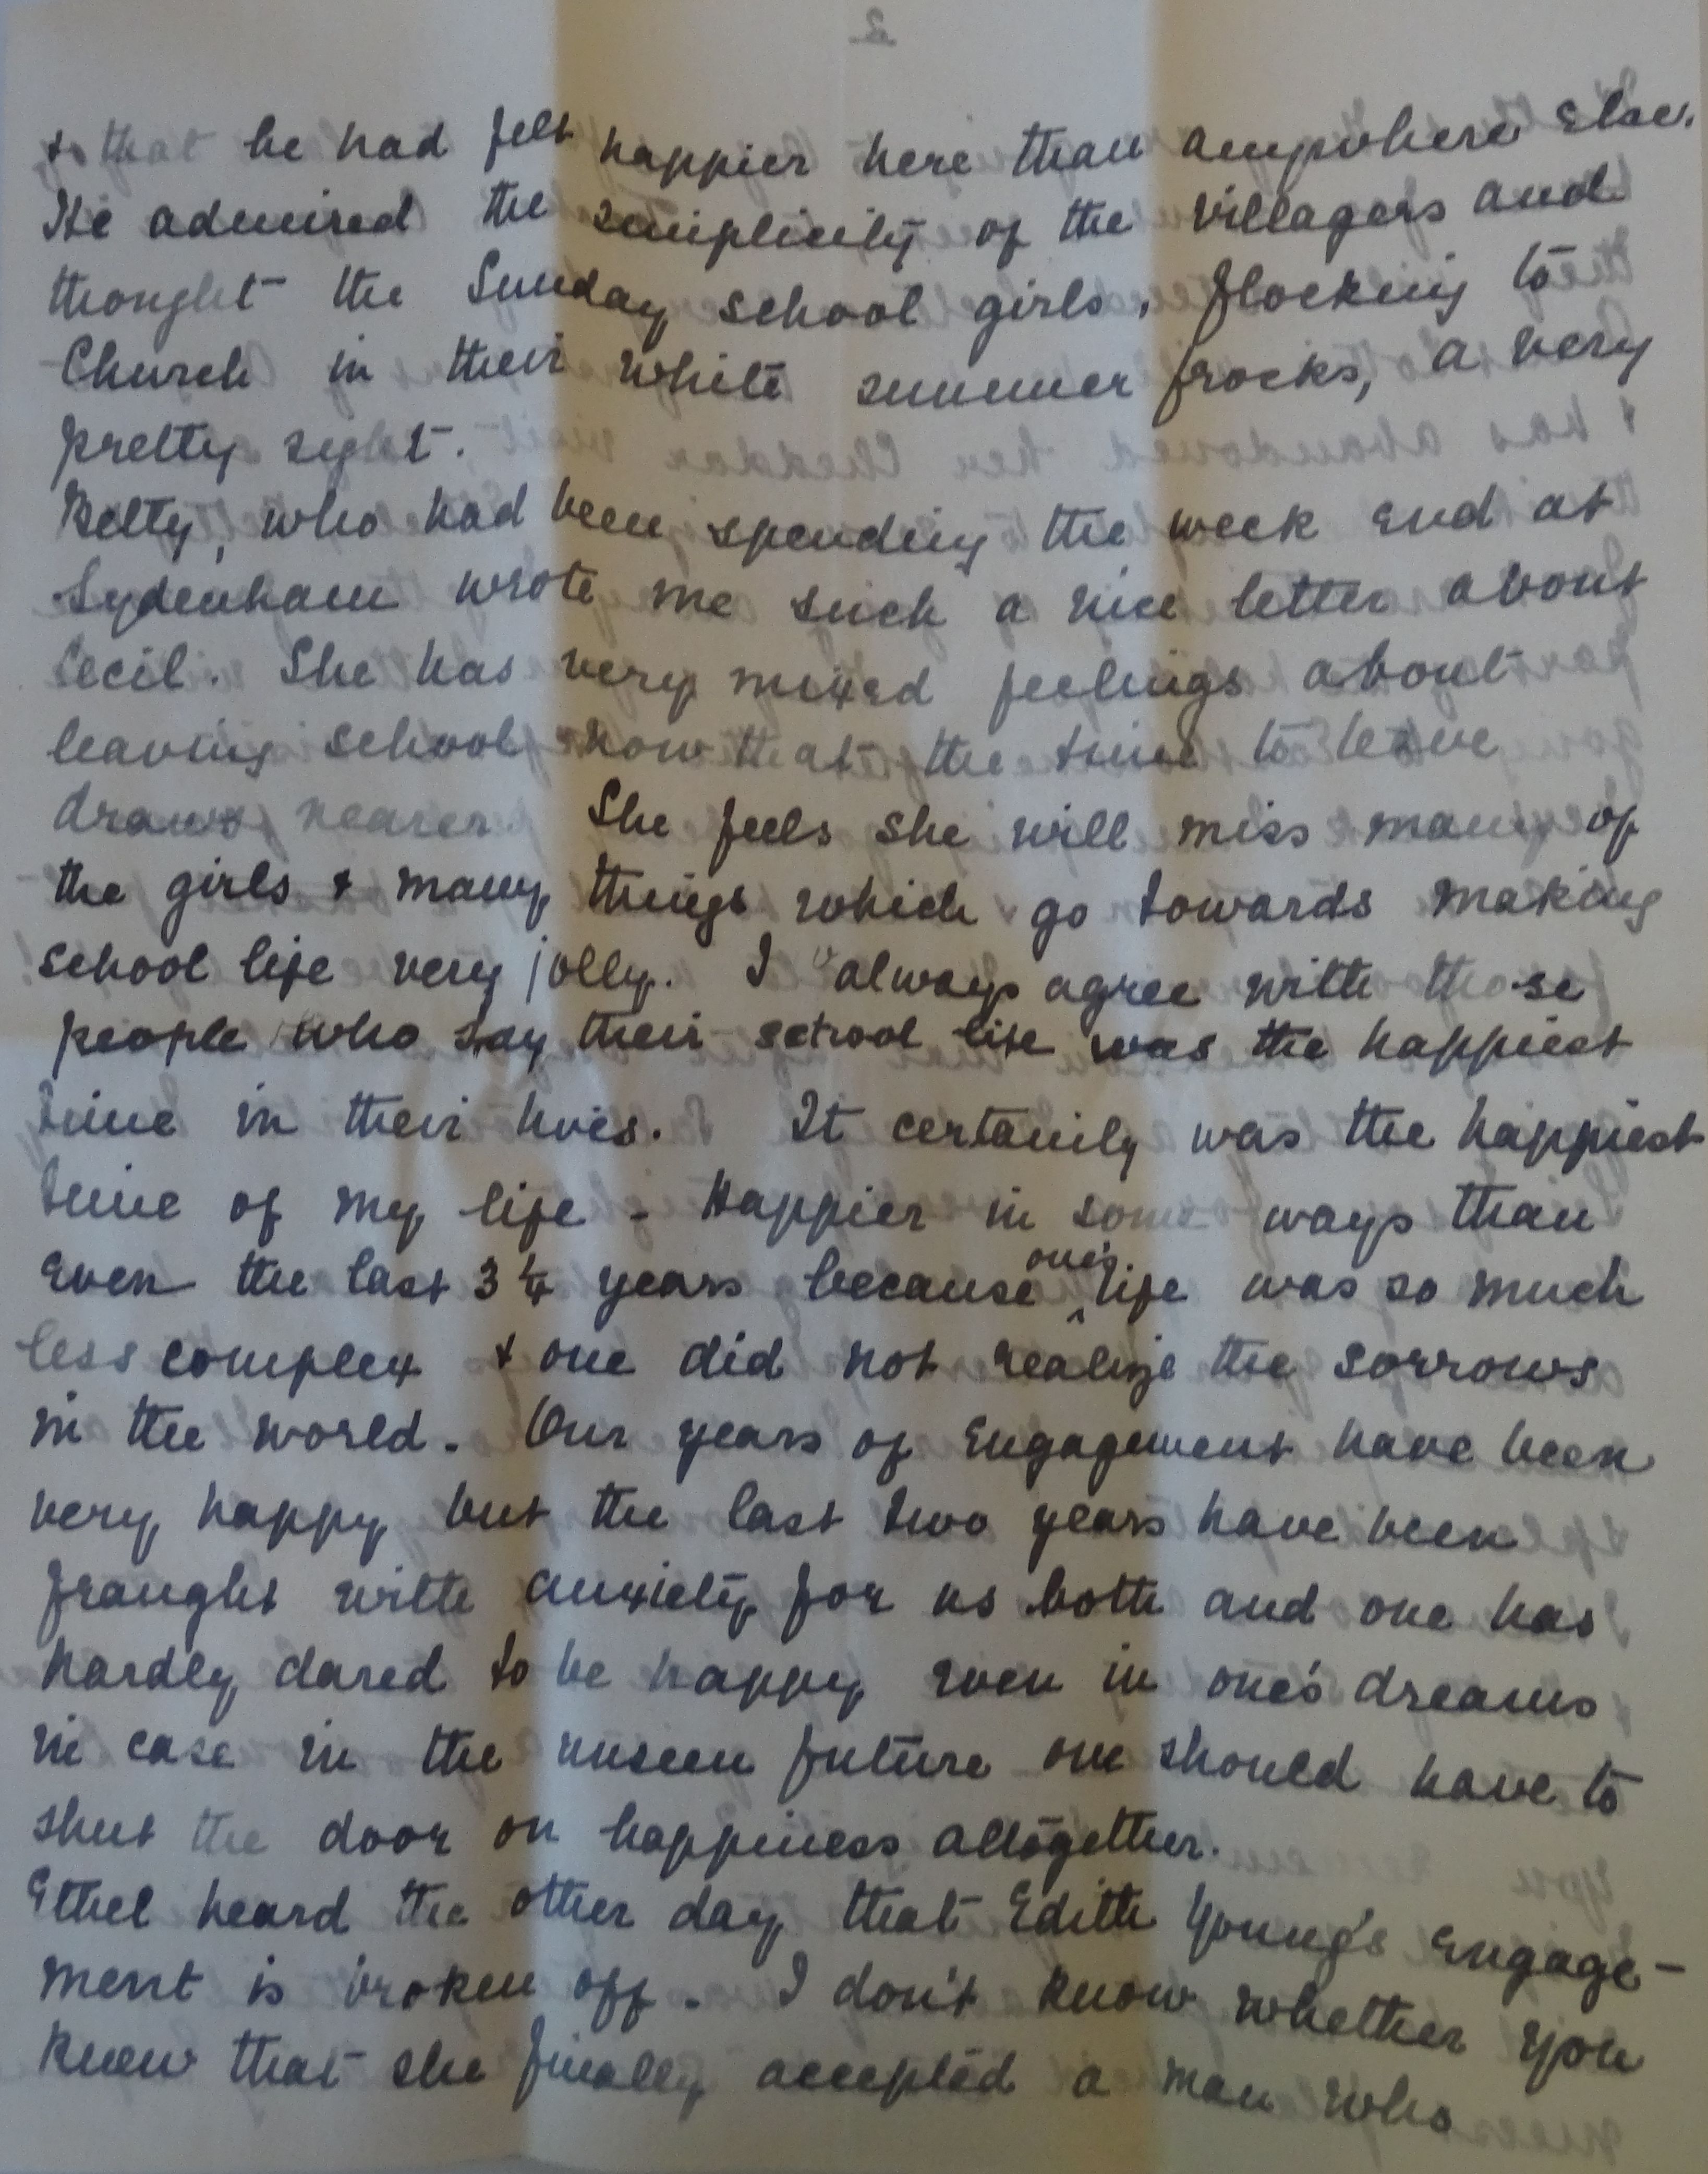 & that he had felt happier here than anywhere else.
He admired the simplicity of the villagers and
thought the Sunday school girls, flocking to
Church in their white summer frocks, a very
pretty sight.
Betty, who had been spending the week end at
Sydenham wrote me such a nice letter about
Cecil. She has very mixed feelings about
leaving school now that the time to leave
draws nearer. She feels she will miss many of
the girls & many things which go towards making
school life very jolly. I always agree with those
people who say their school life was the happiest
time in their lives. It certainly was the happiest
time of my life - Happier in some ways than
even the last 3¼ years because one's life was so much
less complex & one did not realize the sorrows
in the world. Our years of engagement have been
very happy but the last two years have been
fraught with anxiety for us both and one has
hardly dared to be happy even in one's dreams
in case in the unseen future one should have to
shut the door on happiness altogether.
Ethel heard the other day that Edith Young's engage-
ment is broken off. I don't know whether you
knew that she finally accepted a man who